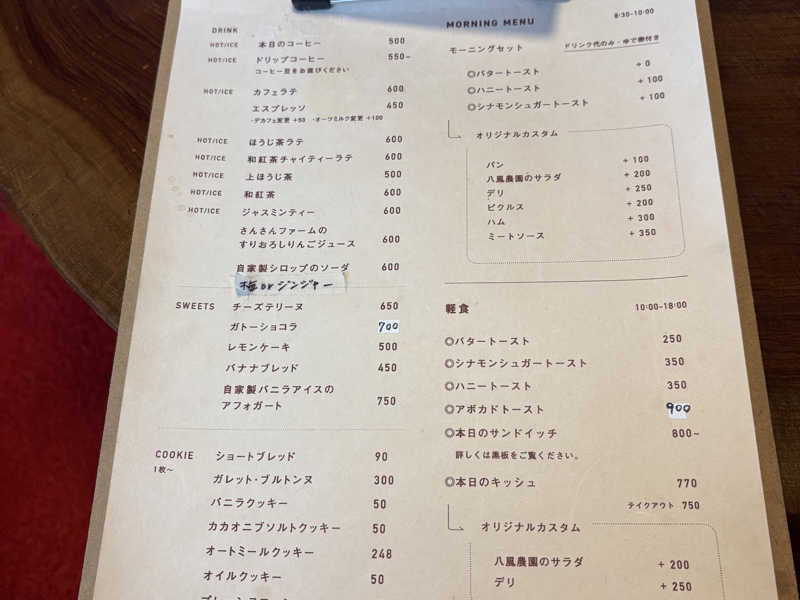 DRINK
HOT/ICE 本日のコーヒー 500
HOT/ICE ドリップコーヒー 550~
コーヒー豆をお選びください
HOT/ICE カフェラテ 600
エスプレッソ 450
・デカフェ変更 +50 ・オーツミルク変更 +100
HOT/ICE ほうじ茶ラテ 600
HOT/ICE 和紅茶チャイティーラテ 600
HOT/ICE 上ほうじ茶 500
HOT/ICE 和紅茶 600
HOT/ICE ジャスミンティー 600
さんさんファームの
すりおろしりんごジュース 600
自家製シロップのソーダ 600
梅orジンジャー
SWEETS チーズテリーヌ 650
ガトーショコラ 700
レモンケーキ 500
バナナブレッド 450
自家製バニラアイスの
アフォガート 750
COOKIE ショートブレッド 90
1枚〜
ガレット・ブルトンヌ 300
バニラクッキー 50
カカオニブソルトクッキー 50
オートミールクッキー 248
オイルクッキー 50
MORNING MENU 8:30-10:00
モーニングセット ドリンク代のみ・ゆで卵付き
◎バタートースト + 0
◎ハニートースト + 100
◎シナモンシュガートースト + 100
オリジナルカスタム
パン + 100
八風農園のサラダ + 200
デリ + 250
ピクルス + 200
ハム + 300
ミートソース + 350
軽食 10:00-18:00
◎バタートースト 250
◎シナモンシュガートースト 350
◎ハニートースト 350
◎アボカドトースト 900
◎本日のサンドイッチ 800~
詳しくは黒板をご覧ください。
◎本日のキッシュ 770
テイクアウト 750
オリジナルカスタム
八風農園のサラダ + 200
デリ + 250